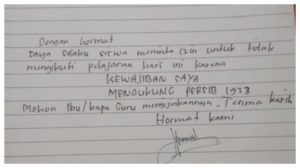 Dengan hormat
Saya selaku siswa meminta izin untuk tidak
mengikuti pelajaran hari ini karena
KEWAJIBAN SAYA
MENDUKUNG PERSIB 1933
Mohon Ibu/bapa Guru mengijinkannya. Terima kasih
Hormat kami